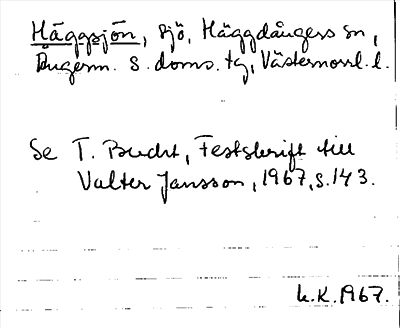 Häggsjön, sjö, Häggdångers sn,
Ångerm. s. doms. tg, Västernorrl. l.
Se T. Bucht, Festskrift till
Valter Jansson, 1967, s. 143.
K.K. 1967.